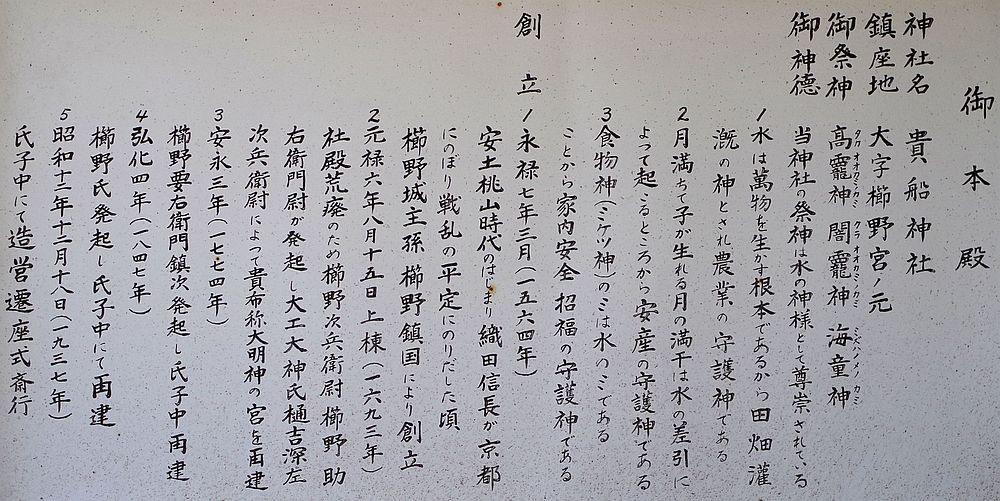 御本殿
神社名 貴船神社
鎮座地 大字櫛野宮ノ元
御祭神 高龗神 闇龗神 海童神
タカオオカミノカミ クラオオカミノカミ ミズハノメノカミ
御神徳 当神社の祭神は水の神様として尊崇されている
1 水は萬物を生かす根本であるから田畑灌
漑の神とされ農業の守護神である
2 月満ちて子が生れる月の満干は水の差引に
よって起こるところから安産の守護神である
3 食物神(ミケツ神)のミは水のミである
ことから家内安全 招福の守護神である
創立 1 永禄七年三月(一五六四年)
安土桃山時代のはじまり織田信長が京都
にのぼり戦乱の平定にのりだした頃
櫛野城主孫櫛野鎮国により創立
2 元禄六年八月十五日上棟(一六九三年)
社殿荒廃のため櫛野次兵衛尉櫛野助
右衛門尉が発起し大工大神氏樋吉深左
次兵衛尉によって貴布称大明神の宮を再建
3 安永三年(一七七四年)
櫛野要右衛門鎮次発起し氏子中再建
4 弘化四年(一八四七年)
櫛野氏発起し氏子中にて再建
5 昭和十二年十二月十八日(一九三七年)
氏子中にて造営遷座式斎行